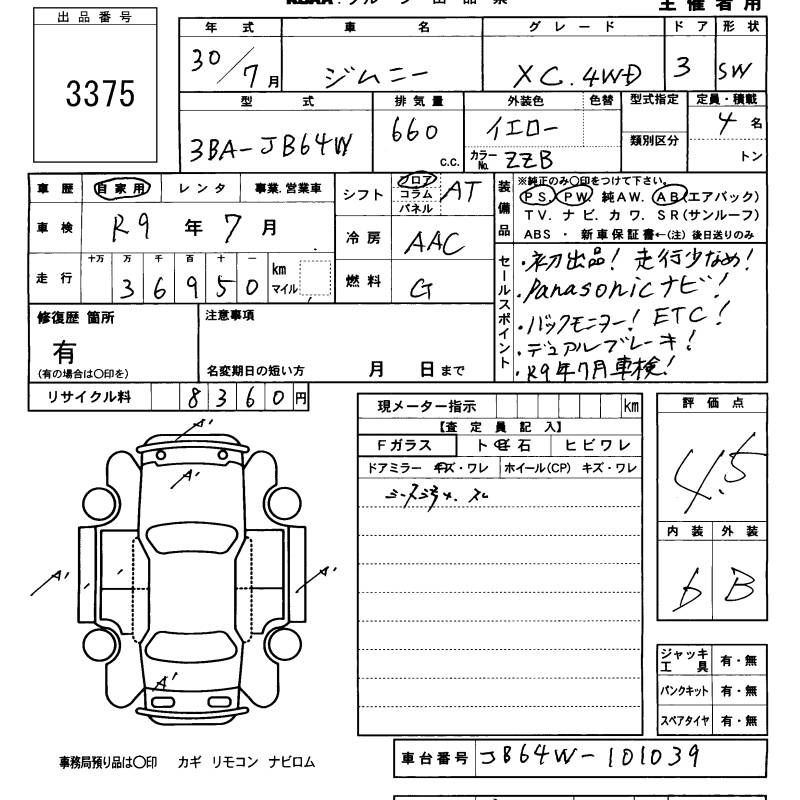 出品番号
3375
主催者用
年式 車名 グレード ドア 形状
30/7月 ジムニー XC.4WD 3 SW
型式 排気量 外装色 色替 型式指定 定員・積載
3BA-JB64W 660 c.c. イエロー 4名
カラーNo. ZZB 類別区分 トン
車歴 自家用 レンタ 事業.営業車
シフト フロア コラム パネル AT
装備品 ※純正のみ○印をつけて下さい。
PS. PW. 純AW. AB(エアバック)
TV. ナビ. カワ. SR(サンルーフ)
ABS ・ 新車保証書←(注) 後日送りのみ
車検 R9年7月
冷房 AAC
走行 十万 万 千 百 十 一
36950 km マイル
燃料 G
セールスポイント
・初出品! 走行少なめ!
・Panasonicナビ!
・バックモニター! ETC!
・デュアルブレーキ!
・R9年7月車検!
修復歴 箇所
有
(有の場合は○印を)
注意事項
名変期日の短い方 月 日まで
リサイクル料 8360円
現メーター指示 km
【査定員記入】
Fガラス ト 石 ヒビワレ
ドアミラー キズ・ワレ ホイール(CP) キズ・ワレ
評価点
4.5
内装 外装
b B
A'
A'
A' A'
A'
ジャッキ工具 有・無
パンクキット 有・無
スペアタイヤ 有・無
事務局預り品は○印 カギ リモコン ナビロム
車台番号 JB64W-101039